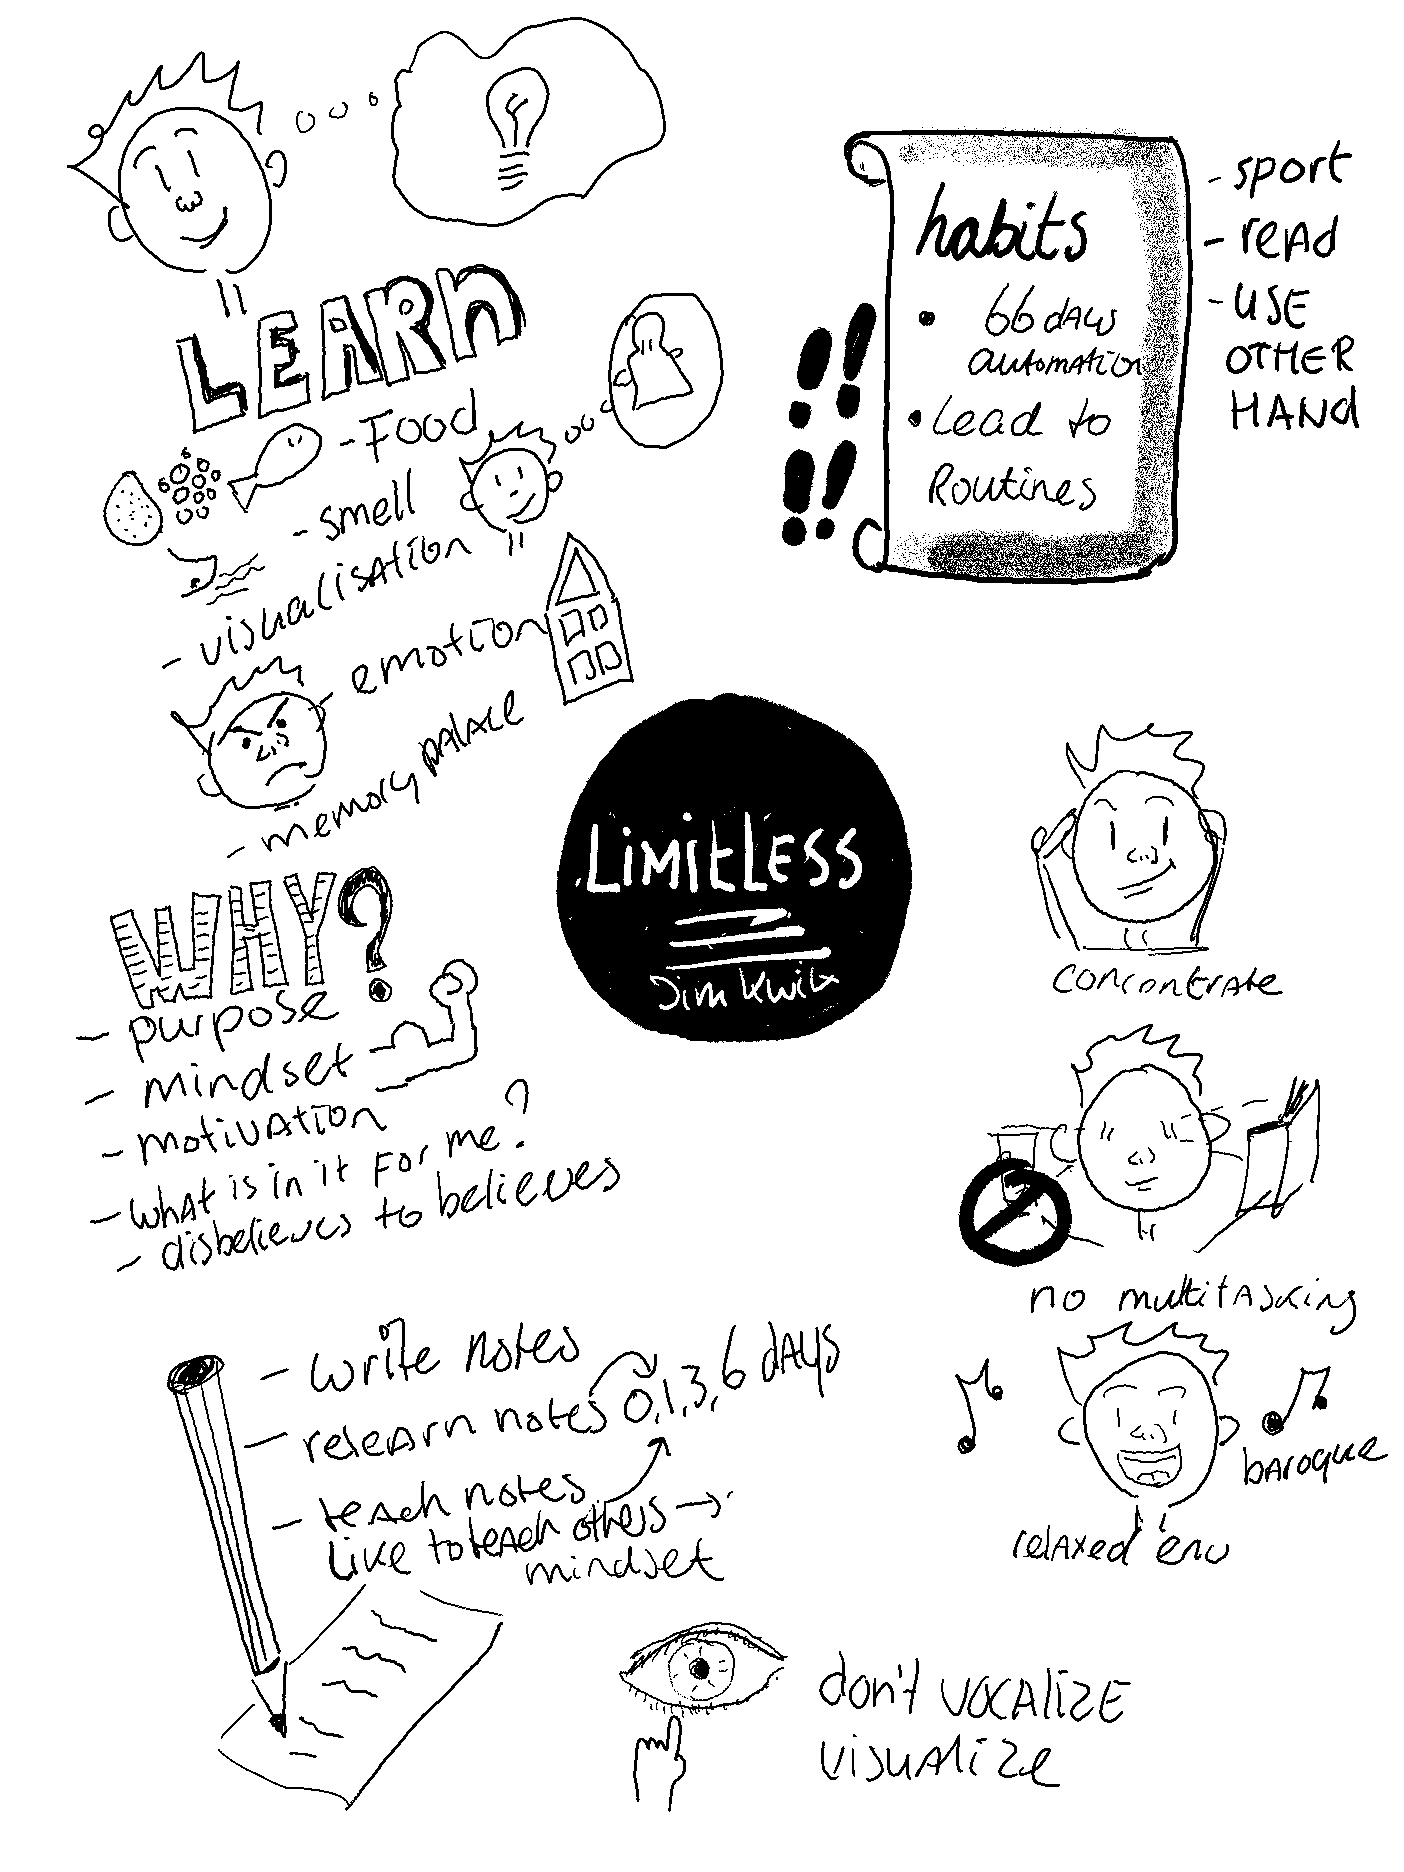 LEARn
- Food
- smell
- visualisation
- emotion
- memory pALACE
habits
• 66 dAys
automation
• Lead to
Routines
- sport
- reAd
- USE
OTHER
HANd
LimitLESS
Jim Kwik
WHY?
- purpose
- mindset
- motivAtion
- whAt is in it for me?
- disbelieves to believes
concontrate
no multitAsking
baroque
relaxed env
- write notes
- relearn notes 0,1,3,6 dAys
- teach notes
Like to teach others →
mindset
don't VOCAliZE
visuAlize